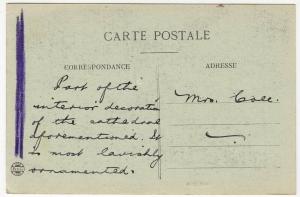 CARTE POSTALE
CORRESPONDANCE
ADRESSE
Part of the
interior decoration
of the cathedral
aforementioned. It
is most lavishly
ornamented.
Mrs. Cole.